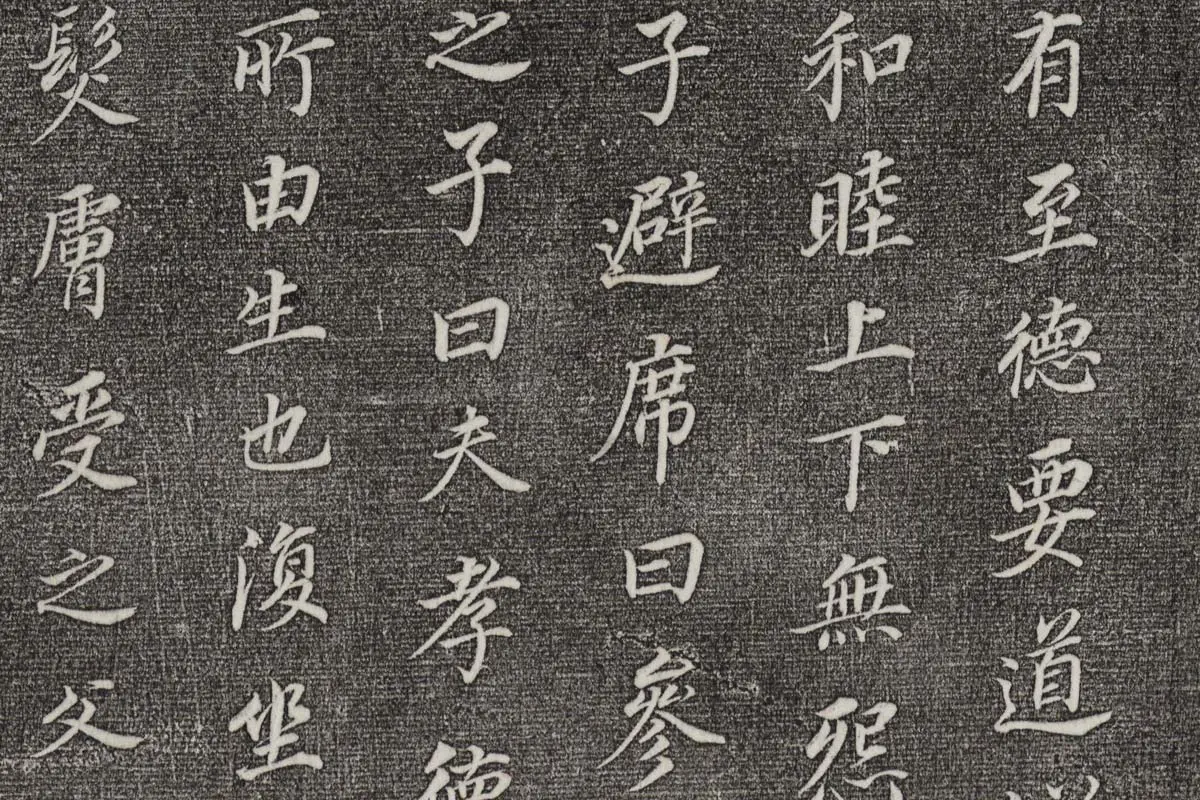 有至德要道
和睦上下無怨
子避席曰參
之子曰夫孝德
所由生也復坐
髮膚受之父